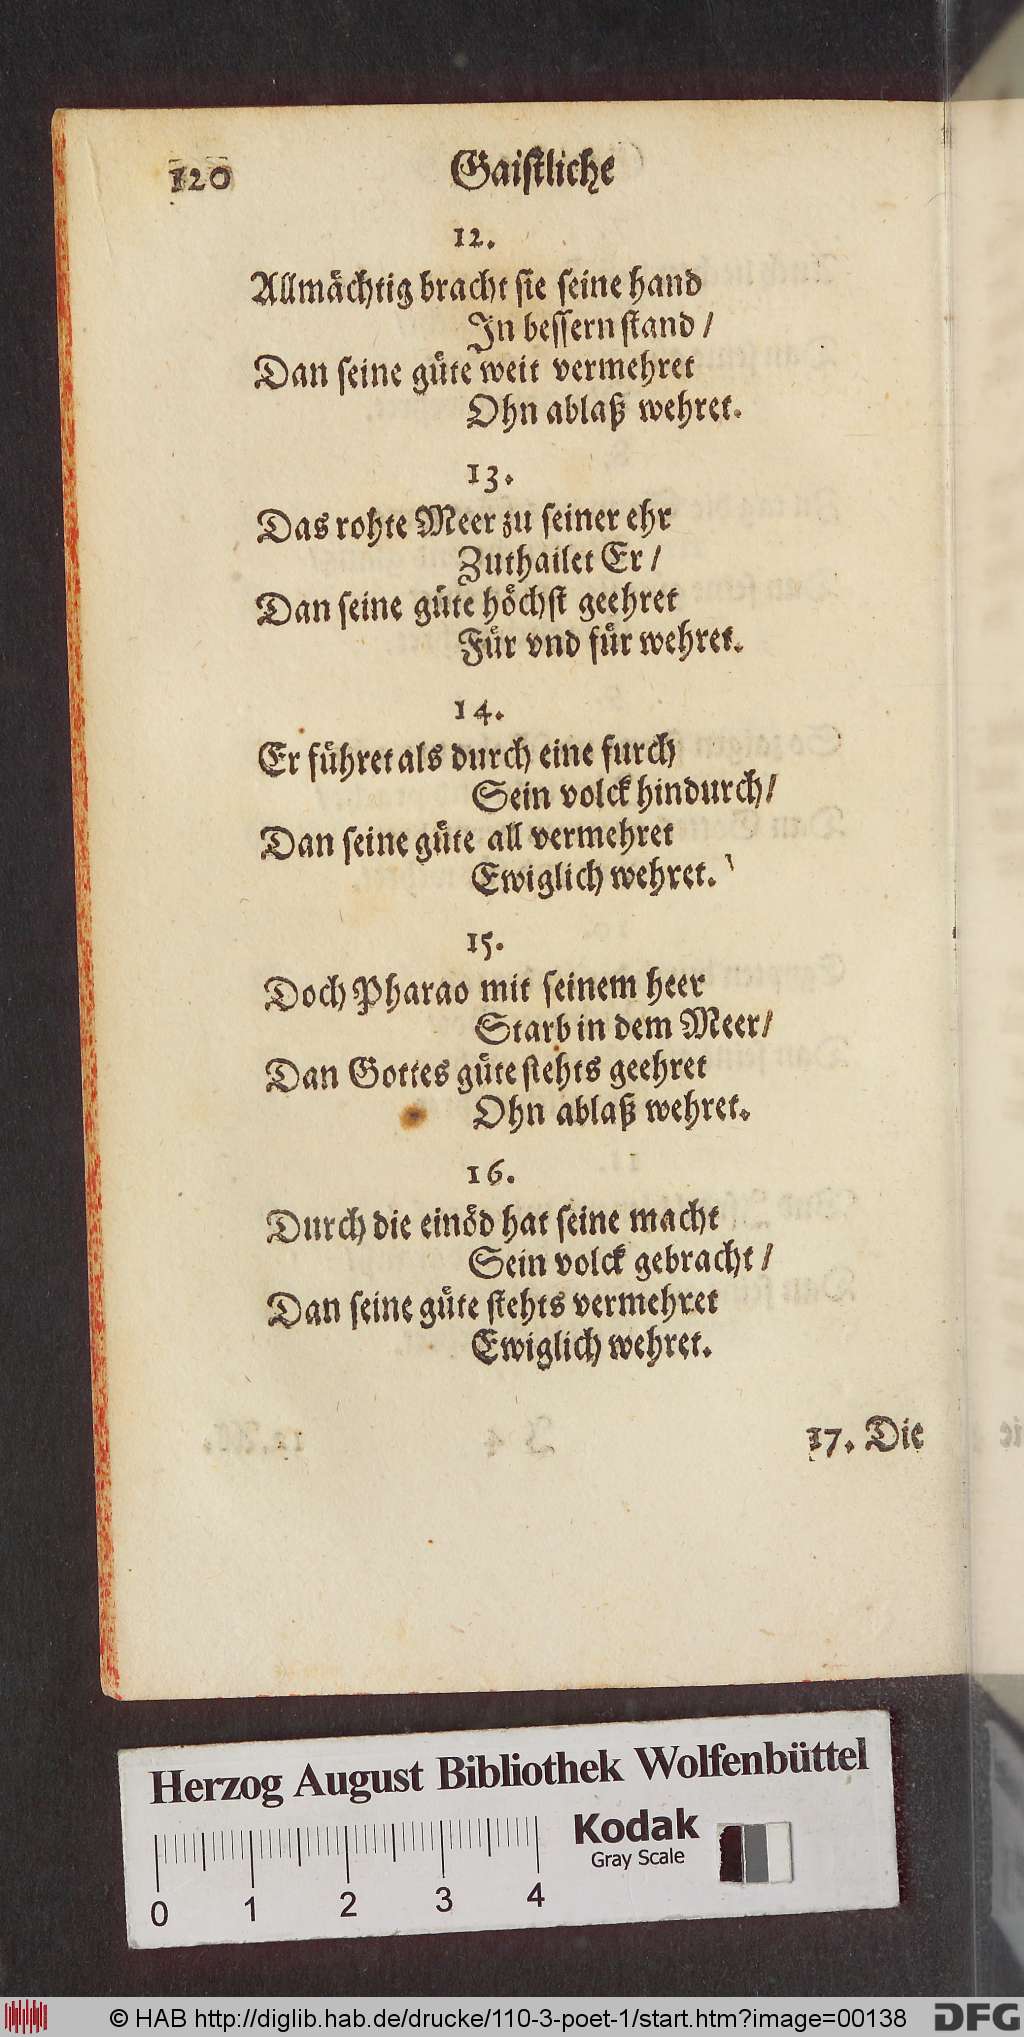 120 Gaiſtliche
12.
Allmaͤchtig bracht ſie ſeine hand
In beſſern ſtand /
Dan ſeine guͤte weit vermehret
Ohn ablaß wehret.
13.
Das rohte Meer zu ſeiner ehr
Zuthailet Er /
Dan ſeine guͤte hoͤchſt geehret
Fuͤr vnd fuͤr wehret.
14.
Er fuͤhret als durch eine furch
Sein volck hindurch /
Dan ſeine guͤte all vermehret
Ewiglich wehret.
15.
Doch Pharao mit ſeinem heer
Starb in dem Meer /
Dan Gottes guͤte ſtehts geehret
Ohn ablaß wehret.
16.
Durch die einoͤd hat ſeine macht
Sein volck gebracht /
Dan ſeine guͤte ſtehts vermehret
Ewiglich wehret.
17. Die
Herzog August Bibliothek Wolfenbüttel
Kodak
Gray Scale
0 1 2 3 4
© HAB http://diglib.hab.de/drucke/110-3-poet-1/start.htm?image=00138
DFG